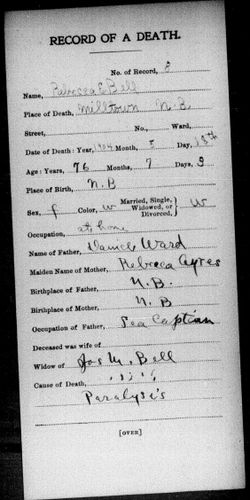 RECORD OF A DEATH.
No. of Record, 3
Name, Rebecca E Bell
Place of Death, Milltown N.B
Street, No., Ward,
Date of Death: Year, 1904 Month, 5 Day, 18th
Age: Years, 76 Months, 7 Days, 3
Place of Birth, N.B
Sex, f Color, w Married, Single, Widowed, or Divorced, } W
Occupation, at home
Name of Father, Daniel Ward
Maiden Name of Mother, Rebecca Ayres
Birthplace of Father, N.B.
Birthplace of Mother, N.B
Occupation of Father, Sea Captian
Deceased was wife of
Widow of Jos M. Bell
Cause of Death,
Paralysis
[OVER]